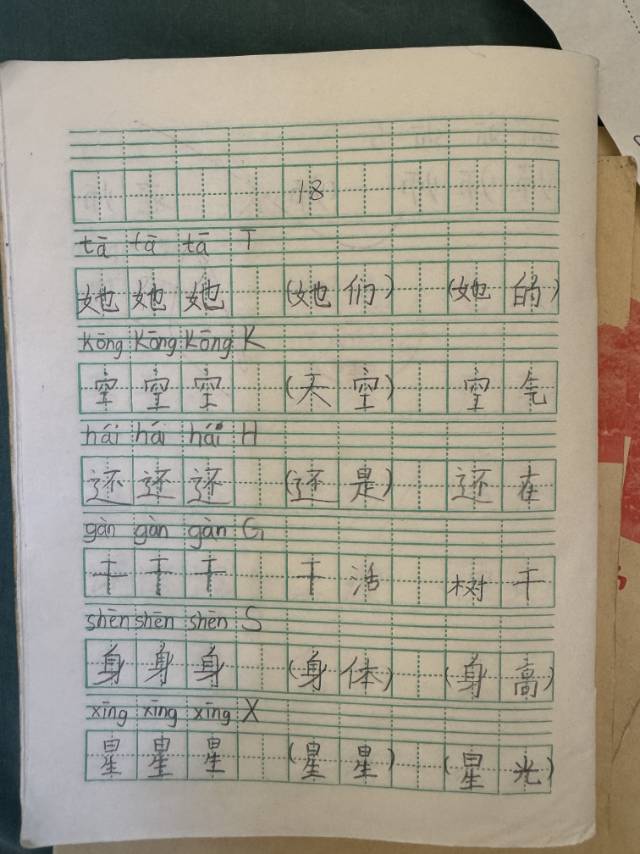 18
tā tā tā T
她 她 她 (她们) (她的)
kōng kōng kōng K
空 空 空 (天空) 空气
hái hái hái H
还 还 还 (还是) 还在
gàn gàn gàn G
干 干 干 干活 树干
shēn shēn shēn S
身 身 身 (身体) (身高)
xīng xīng xīng X
星 星 星 (星星) (星光)